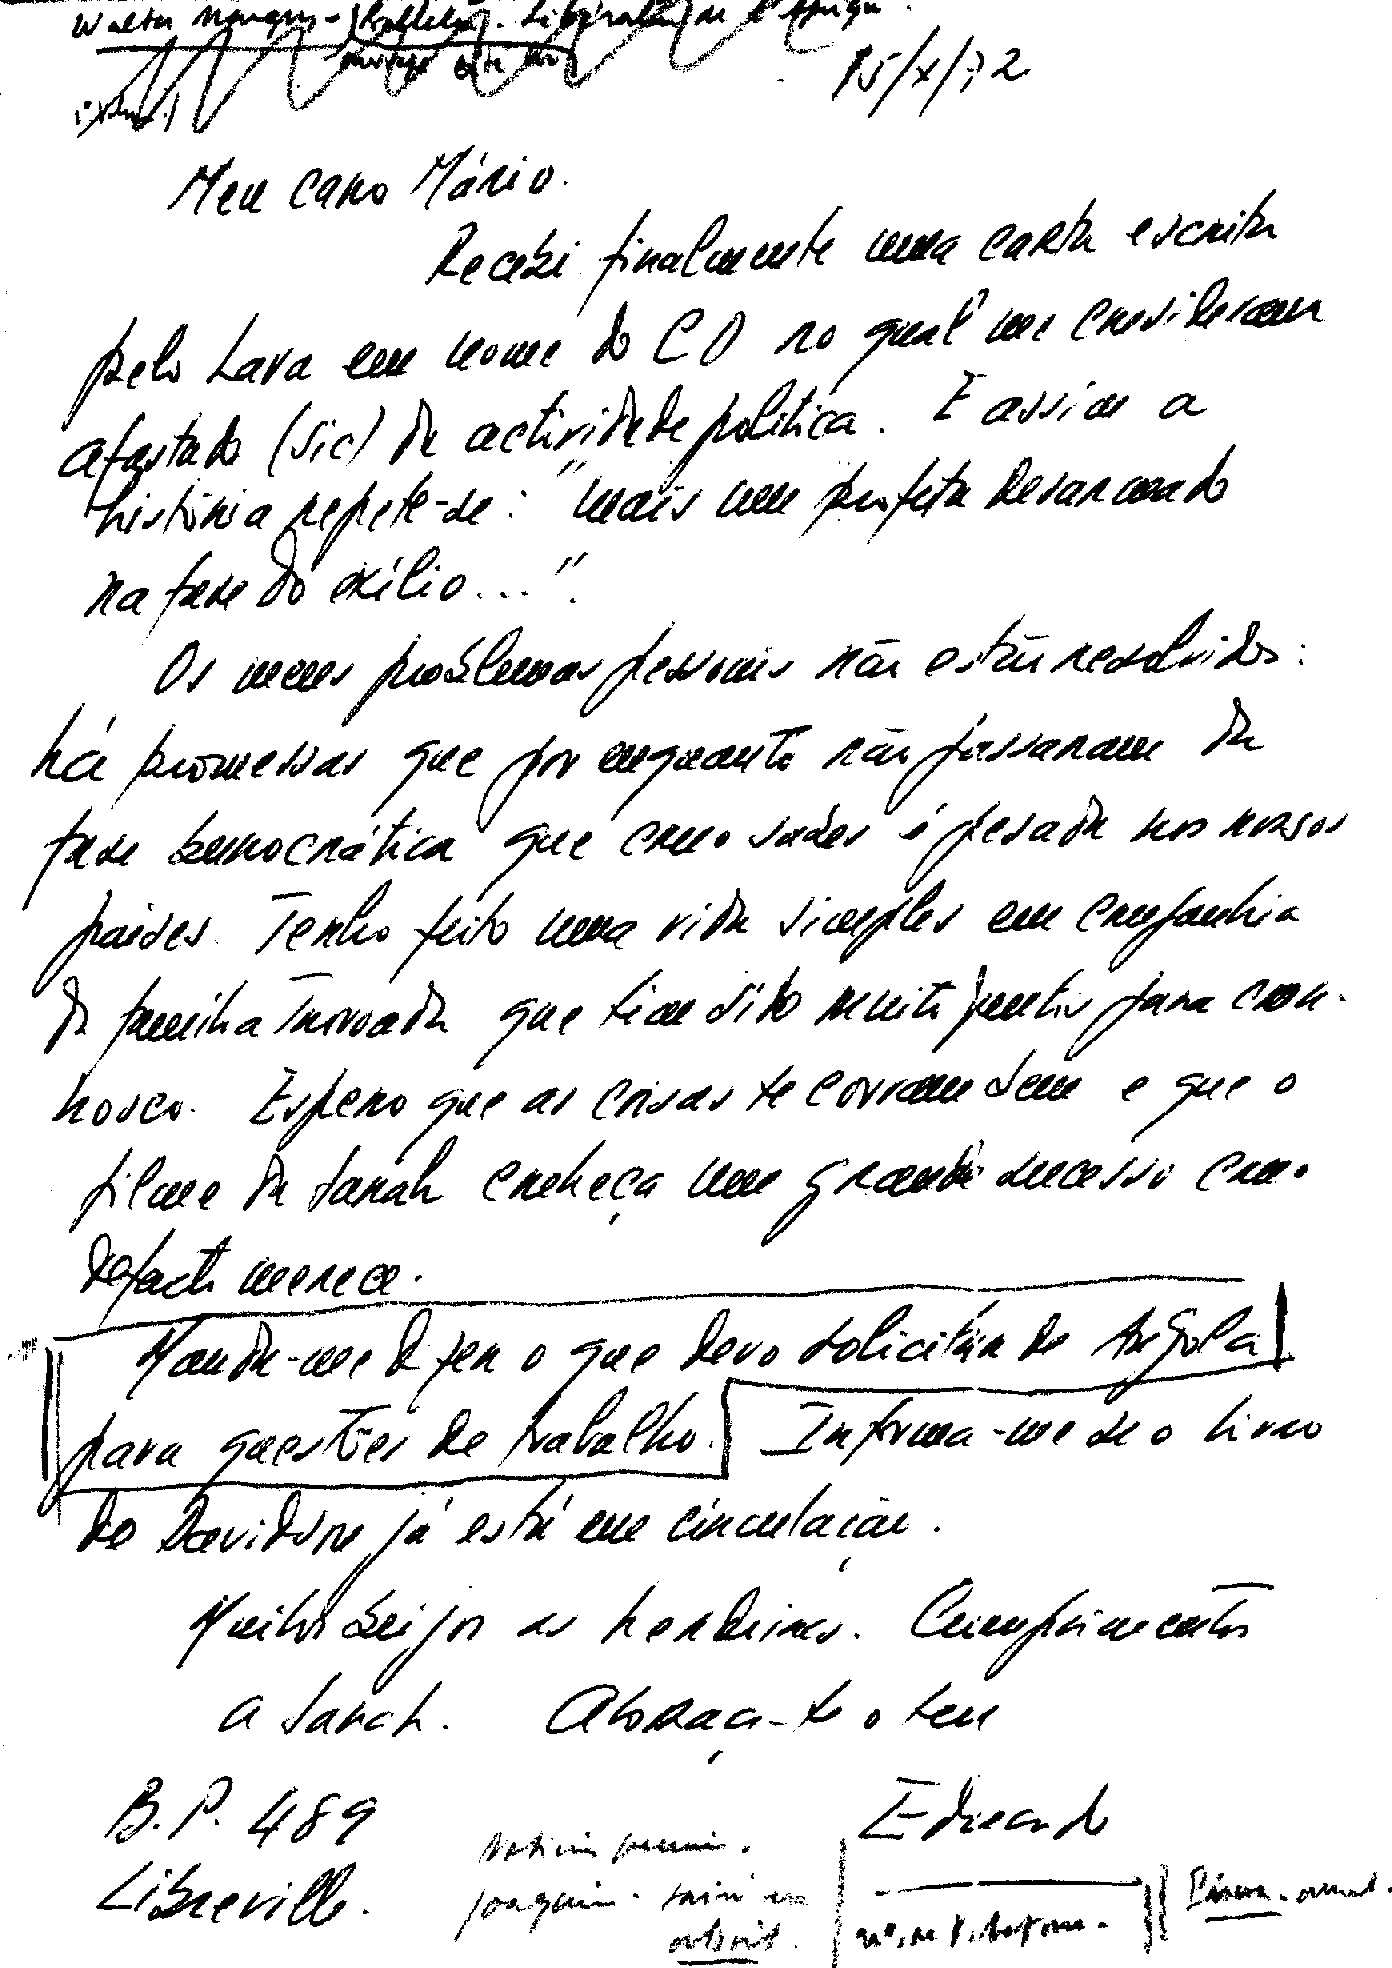 15/X/72
Meu caro Mário.
Recebi finalmente uma carta escrita
pelo Lara em nome do CD no qual me consideram
afastado (sic) da actividade política. E assim a
história repete-se: "mais um profeta desarmado
na fase do exílio..."
Os meus problemas pessoais não estão resolvidos:
há promessas que por enquanto não passaram da
fase burocrática que como sabes é pesada nos nossos
países. Tenho feito uma vida simples em companhia
da família Trovoada que tem sido muito gentis para com-
nosco. Espero que as coisas te corram bem e que o
filme da Sarah conheça um grande sucesso como
de facto merece.
Manda-me dizer o que devo solicitar de Angola
para questões de trabalho. Informa-me se o livro
do Davidson já está em circulação.
Muitos beijos as Cumprimentos
a Sarah. Abraça-te o teu
B.P. 489 Eduardo
Libreville.
joaquim